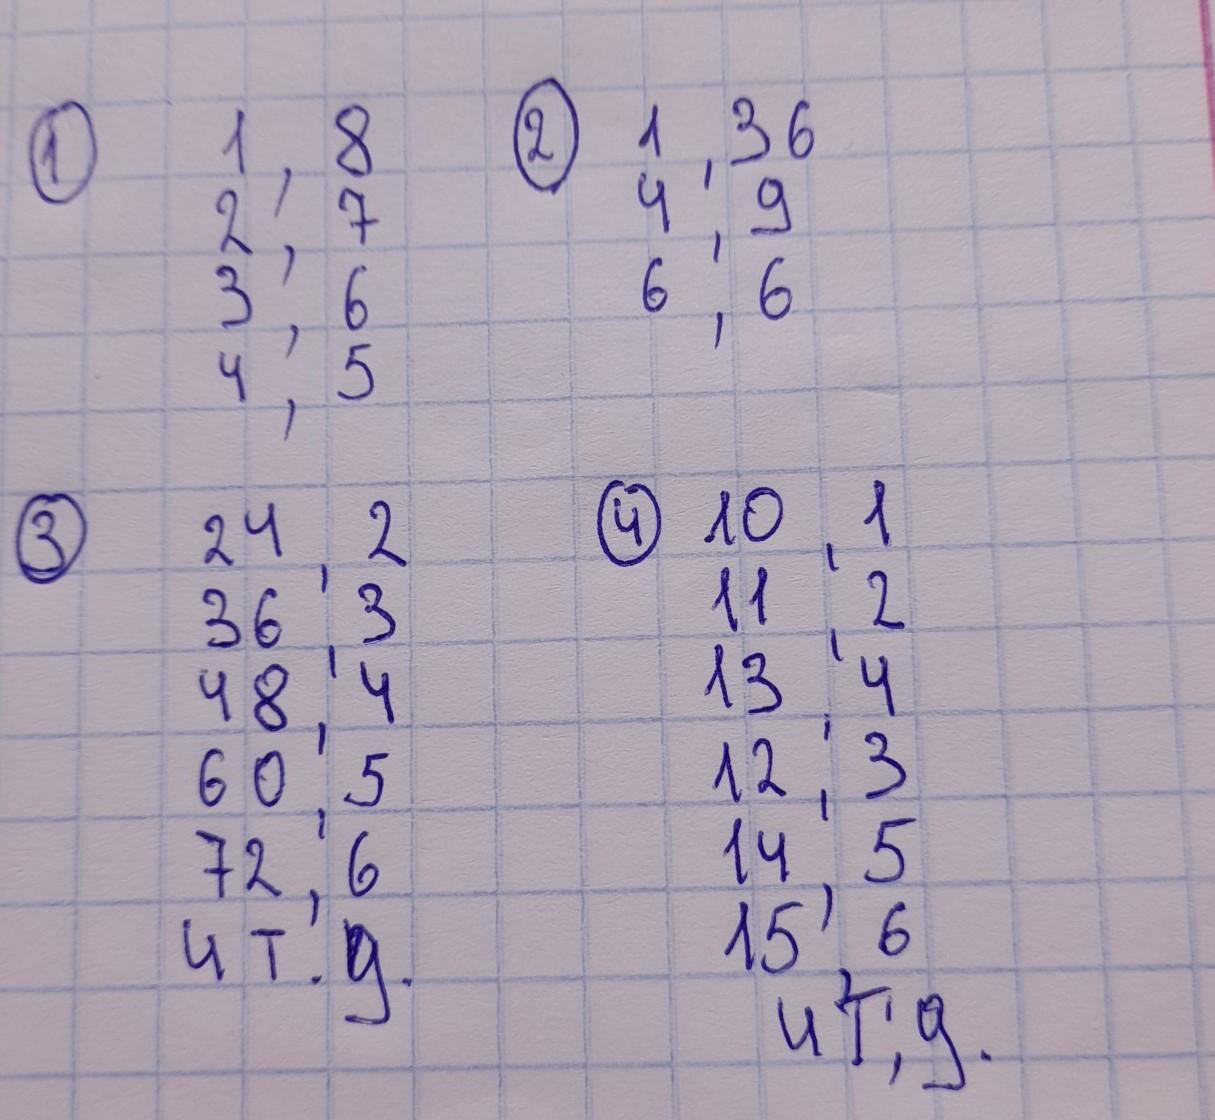 ① 1, 8
2, 7
3, 6
4, 5
② 1, 36
4, 9
6, 6
③ 24, 2
36, 3
48, 4
60, 5
72, 6
и т. д.
④ 10, 1
11, 2
13, 4
12, 3
14, 5
15, 6
и т, д.